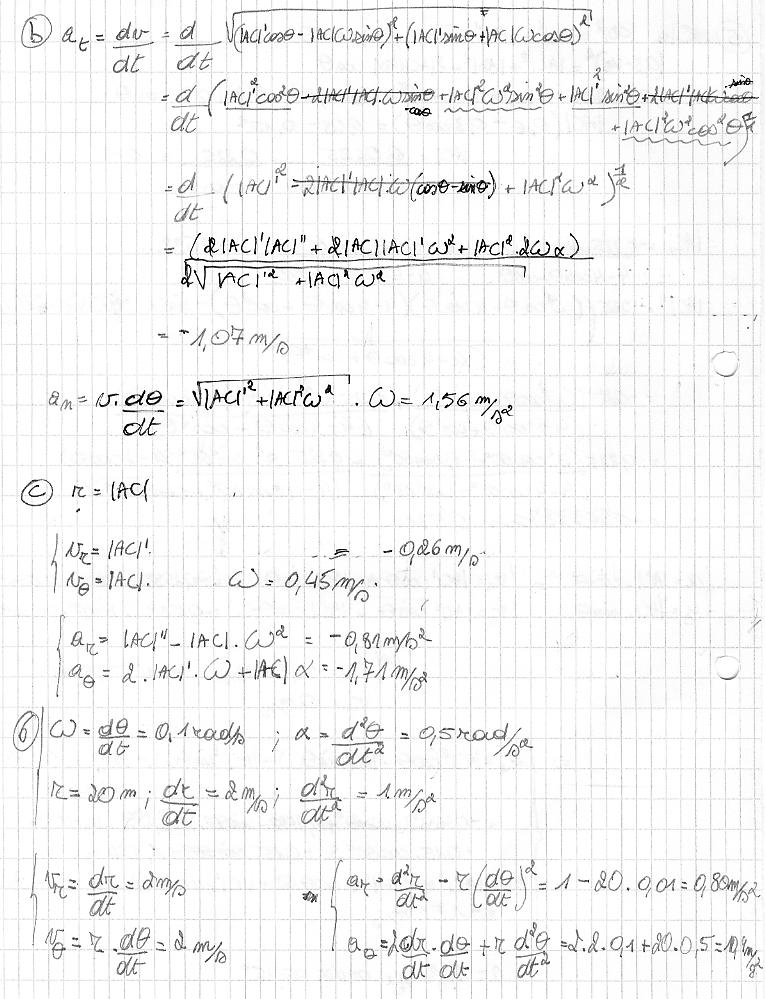 (b) a_t = dv/dt = d/dt √((|AC|'cosθ - |AC|ωsinθ)² + (|AC|'sinθ + |AC|ωcosθ)²)
= d/dt (|AC|'²cos²θ - 2|AC|'|AC|·ω sinθ cosθ + |AC|²ω²sin²θ + |AC|'²sin²θ + 2|AC|'|AC|ω cosθ sinθ
+ |AC|²ω²cos²θ)^½
= d/dt (|AC|'² - 2|AC|'|AC|·ω(cosθ - sinθ) + |AC|²ω²)^½
= (2|AC|'|AC|'' + 2|AC||AC|'ω² + |AC|²·2ωα) / 2√(|AC|'² + |AC|²ω²)
= -1,07 m/s
a_n = v·dθ/dt = √(|AC|'² + |AC|²ω²) · ω = 1,56 m/s²
(c) r = |AC|
v_r = |AC|' = -0,26 m/s
v_θ = |AC|· ω = 0,45 m/s
a_r = |AC|'' - |AC|·ω² = -0,81 m/s²
a_θ = 2·|AC|'·ω + |AC|α = -1,71 m/s²
(6) ω = dθ/dt = 0,1 rad/s ; α = d²θ/dt² = 0,5 rad/s²
r = 20 m ; dr/dt = 2 m/s ; d²r/dt² = 1 m/s²
v_r = dr/dt = 2 m/s
a_r = d²r/dt² - r(dθ/dt)² = 1 - 20·0,01 = 0,80 m/s²
v_θ = r·dθ/dt = 2 m/s
a_θ = 2dr/dt·dθ/dt + r d²θ/dt² = 2·2·0,1 + 20·0,5 = 10,4 m/s²